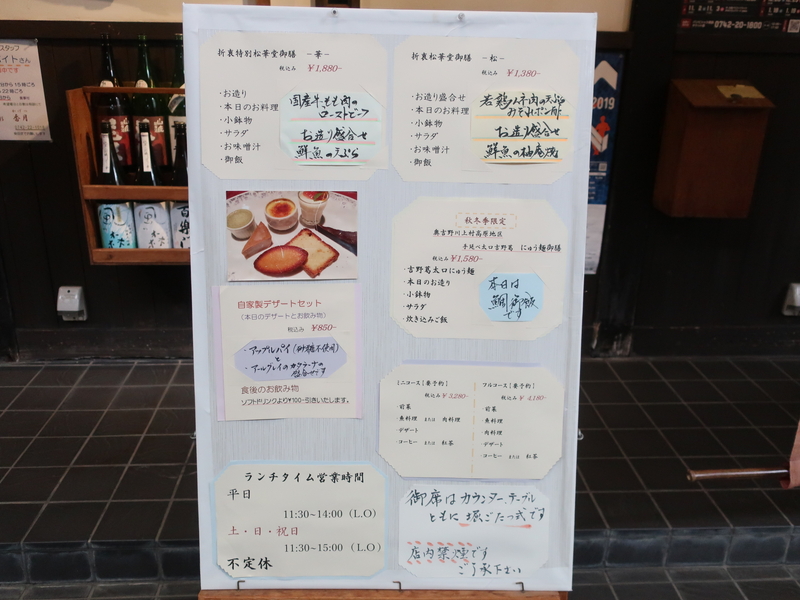 折衷特別松華堂御膳 －華－
税込み ￥1,880-
・お造り
・本日のお料理
・小鉢物
・サラダ
・お味噌汁
・御飯
国産牛もも肉の
ローストビーフ
お造り盛合せ
鮮魚の天ぷら
折衷松華堂御膳 －松－
税込み ￥1,380-
・お造り盛合せ
・本日のお料理
・小鉢物
・サラダ
・お味噌汁
・御飯
若鶏ムネ肉の天ぷら
みぞれポン酢
お造り盛合せ
鮮魚の柚庵焼
秋冬季限定
奥吉野川上村高原地区
手延べ太口吉野葛 にゅう麺御膳
税込み ￥1,580-
・吉野葛太口にゅう麺
・本日のお造り
・小鉢物
・サラダ
・炊き込みご飯
本日は
鯛御飯
です
自家製デザートセット
（本日のデザートとお飲み物）
税込み ￥850-
・アップルパイ（砂糖不使用）
と
・アールグレイのカタラーナの
盛合せです
食後のお飲み物
ソフトドリンクより￥100-引きいたします。
ミニコース【要予約】
税込み ￥3,280-
・前菜
・魚料理 または 肉料理
・デザート
・コーヒー または 紅茶
フルコース【要予約】
税込み ￥4,180-
・前菜
・魚料理
・肉料理
・デザート
・コーヒー または 紅茶
ランチタイム営業時間
平日
11:30~14:00（L.O）
土・日・祝日
11:30~15:00（L.O）
不定休
御席はカウンター、テーブル
ともに堀ごたつ式です
店内禁煙です
ご了承下さい
2019
0742-20-1800